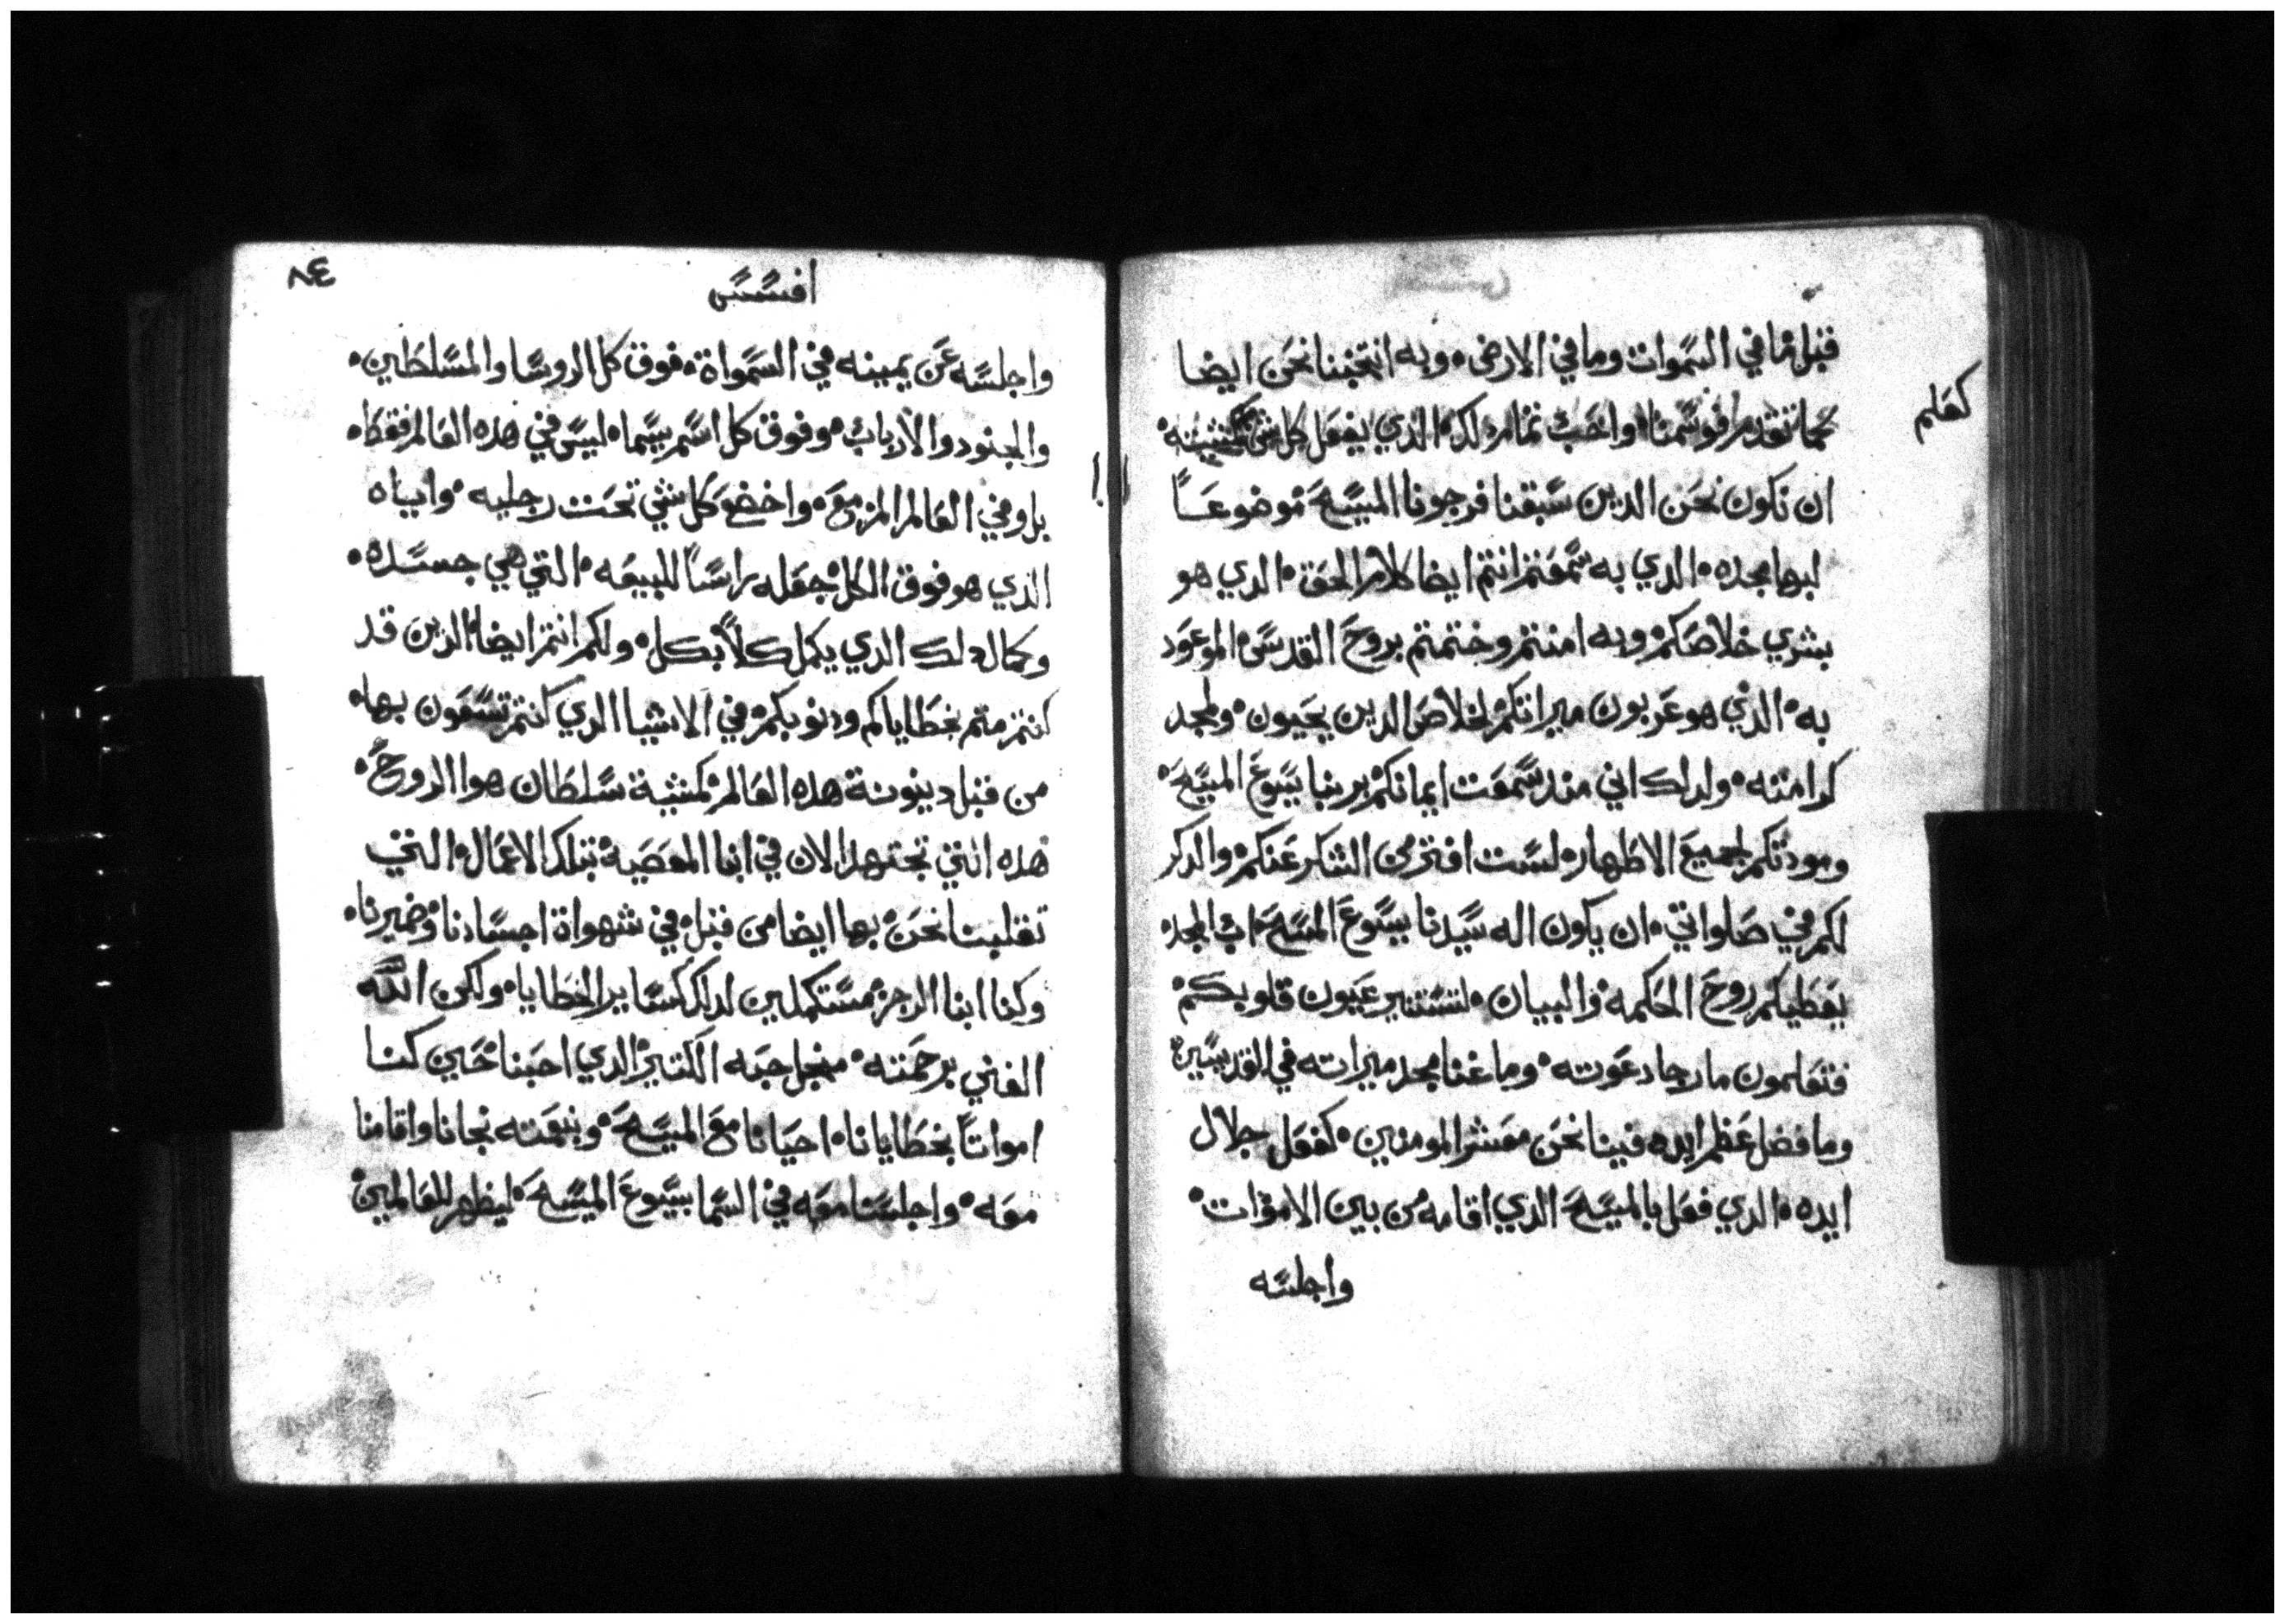 قبل ما في السموات وما في الارض، وبه انتخبنا نحن ايضا
كما تقدم فوسمنا، واحب تمام دلك، الدي يفعل كل شي كمشيته،
كعلم
ان نكون نحن الدين سبقنا فرجونا المسيح، موضوعاً
لبها مجده، الدي به سمعتم انتم ايضا كلام الحق، الدي هو
بشري خلاصكم، وبه امنتم وختمتم بروح القدس، الموعود
به، الدي هو عربون ميراتكم، لخلاص الدين يحيون، ولمجد
كرامته، ولدلك اني مند سمعت ايمانكم بربنا يسوع المسيح،
ومودتكم لجميع الاطهار، لست افتر من الشكر عنكم، والدكر
لكم في صلواتي، ان يكون اله سيدنا يسوع المسيح، اب المجد،
يعطيكم روح الحكمه والبيان، لتستنير عيون قلوبكم،
فتعلمون ما رجا دعوته، وما غنا مجد ميراته في القديسين،
وما فضل عظم ايده فينا نحن معشر المومنين، كفعل جلال
ايده، الدي فعل بالمسيح، الدي اقامه من بين الاموات،
واجلسه
افسس
٨٤
واجلسه عن يمينه في السمواة، فوق كل الروسا والمسلطين،
والجنود والارباب، وفوق كل اسم يسما، ليس في هده العالم فقط،
بل وفي العالم المزمع، واخضع كل شي تحت رجليه، واياه
الدي هو فوق الكل، جعله راساً للبيعه، التي هي جسده،
وكمال دلك الدي يكمل كلاً بكل، ولكم انتم ايضا، الدين قد
كنتم متم بخطاياكم ودنوبكم، في الاشيا الدي كنتم تسعون بها،
من قبل دينونة هده العالم، كمشية سلطان هوا الروح،
هده التي تجتهد الان في ابنا المعصية، بتلك الاعمال، التي
تقلبنا نحن، بها ايضا من قبل، في شهواة اجسادنا وضميرنا،
وكنا ابنا الرجز، مستكملين لدلك كساير الخطايا، ولكن الله
الغني برحمته، من اجل حبه الكتير، الدي احبنا، حين كنا
امواتاً بخطايانا، احيانا مع المسيح، وبنعمته نجانا واقامنا
معه، واجلسنا معه في السما بيسوع المسيح، ليظهر للعالمين